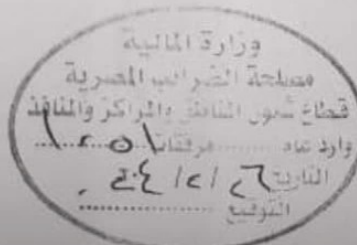 وزارة المالية
مصلحة الضرائب المصرية
قطاع شئون المناطق والمراكز والمنافذ
وارد عام ......... مرفقات .........
التاريخ ٢٦ / ٢ /
التوقيع .........